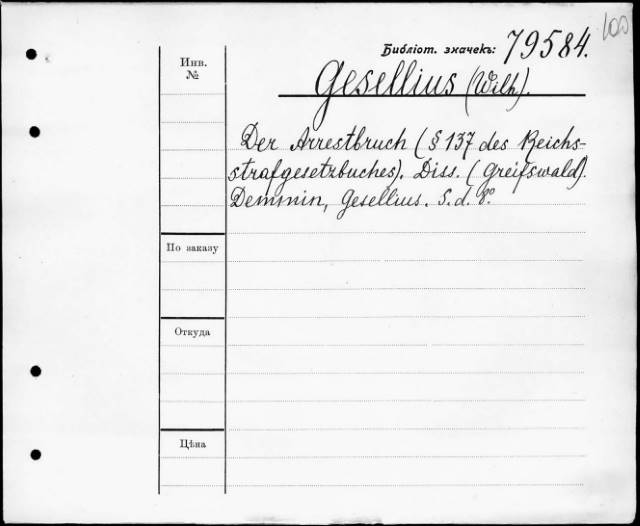 100
Библіот. значекъ: 79584.
Инв.
№
Gesellius (Wilh).
Der Arrestbruch (§ 137 des Reichs-
strafgesetzbuches). Diss. (Greifswald).
Demmin, Gesellius. S. d. 8°.
По заказу
Откуда
Цѣна